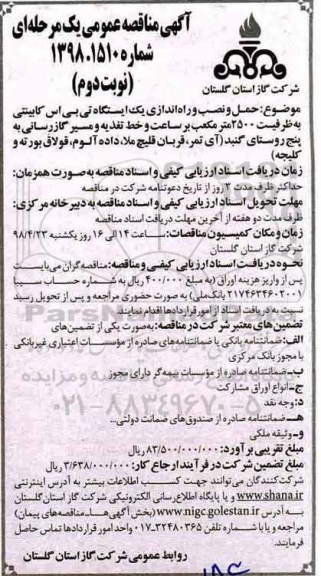 آگهی مناقصه عمومی یک مرحله‌ای
شماره ۱۳۹۸.۱۵۱۰
(نوبت دوم)
شرکت گاز استان گلستان
موضوع: حمل و نصب و راه‌اندازی یک ایستگاه تی بی اس کابینتی
به ظرفیت ۲۵۰۰ متر مکعب بر ساعت و خط تغذیه و مسیر گازرسانی به
پنج روستای گنبد (آی تمر، قربان قلیچ ملا، داده آلوم، قولاق بورته و
کلیجه)
زمان دریافت اسناد ارزیابی کیفی و اسناد مناقصه به صورت همزمان:
حداکثر ظرف مدت ۳ روز از تاریخ دعوتنامه شرکت در مناقصه
مهلت تحویل اسناد ارزیابی کیفی و اسناد مناقصه به دبیرخانه مرکزی:
ظرف مدت دو هفته از آخرین مهلت دریافت اسناد مناقصه
زمان و مکان کمیسیون مناقصات: ساعت ۱۴ الی ۱۶ روز یکشنبه ۹۸/۴/۲۳
شرکت گاز استان گلستان
نحوه دریافت اسناد ارزیابی کیفی و مناقصه: مناقصه‌گران می‌بایست
پس از واریز هزینه اوراق (به مبلغ ۴۰۰/۰۰۰ ریال به شماره حساب سیبا
۲۱۷۴۶۳۴۶۰۲۰۰۱ بانک ملی) به صورت حضوری مراجعه و پس از تحویل رسید
نسبت به دریافت اسناد از امور قراردادها اقدام نمایند.
تضمین های معتبر شرکت در مناقصه: به صورت یکی از تضمین‌های
الف: ضمانتنامه بانکی یا ضمانتنامه‌های صادره از مؤسسات اعتباری غیربانکی
با مجوز بانک مرکزی
ب- ضمانتنامه صادره از مؤسسات بیمه‌گر دارای مجوز
ج- انواع اوراق مشارکت
د: وجه نقد
هـ- ضمانتنامه صادره از صندوق‌های ضمانت دولتی...
و- وثیقه ملکی
مبلغ تقریبی برآورد: ۸۳/۵۰۰/۰۰۰/۰۰۰ ریال
مبلغ تضمین شرکت در فرآیند ارجاع کار: ۳/۶۳۸/۰۰۰/۰۰۰ ریال
شرکت‌کنندگان می توانند جهت کسب اطلاعات بیشتر به آدرس اینترنتی
www.shana.ir و یا پایگاه اطلاع‌رسانی الکترونیکی شرکت گاز استان گلستان
به آدرس www.nigc.golestan.ir (بخش آگهی‌ها- مناقصه‌های پیمان)
مراجعه و یا با شماره تلفن ۳۲۴۸۰۳۶۵-۰۱۷ واحد امور قراردادها تماس حاصل
فرمایند.
روابط عمومی شرکت گاز استان گلستان